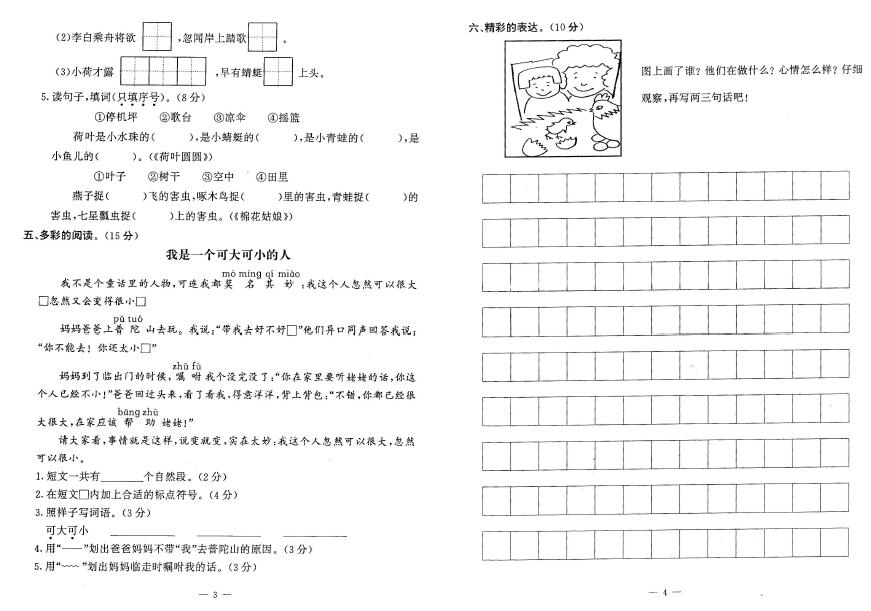 (2)李白乘舟将欲 ,忽闻岸上踏歌 。
(3)小荷才露 ,早有蜻蜓 上头。
5.读句子,填词(只填序号)。(8分)
①停机坪 ②歌台 ③凉伞 ④摇篮
荷叶是小水珠的( ),是小蜻蜓的( ),是小青蛙的( ),是
小鱼儿的( )。(《荷叶圆圆》)
①叶子 ②树干 ③空中 ④田里
燕子捉( )飞的害虫,啄木鸟捉( )里的害虫,青蛙捉( )的
害虫,七星瓢虫捉( )上的害虫。(《棉花姑娘》)
五、多彩的阅读。(15分)
我是一个可大可小的人
mò míng qí miào
我不是个童话里的人物,可连我都莫名其妙:我这个人忽然可以很大
□忽然又会变得很小□
pǔ tuó
妈妈爸爸上普陀山去玩。我说:“带我去好不好□”他们异口同声回答我说:
“你不能去!你还太小□”
zhǔ fù
妈妈到了临出门的时候,嘱咐我个没完没了:“你在家里要听姥姥的话,你这
个人已经不小!”爸爸回过头来,看了看我,得意洋洋,背上背包:“不错,你都已经很
bāng zhù
大很大,在家应该帮助姥姥!”
请大家看,事情就是这样,说变就变,实在太妙:我这个人忽然可以很大,忽然
可以很小。
1.短文一共有________个自然段。(2分)
2.在短文□内加上合适的标点符号。(4分)
3.照样子写词语。(3分)
可大可小 ________ ________ ________
4.用“——”划出爸爸妈妈不带“我”去普陀山的原因。(3分)
5.用“﹏﹏”划出妈妈临走时嘱咐我的话。(3分)
— 3 —
六、精彩的表达。(10分)
图上画了谁?他们在做什么?心情怎么样?仔细
观察,再写两三句话吧!
— 4 —